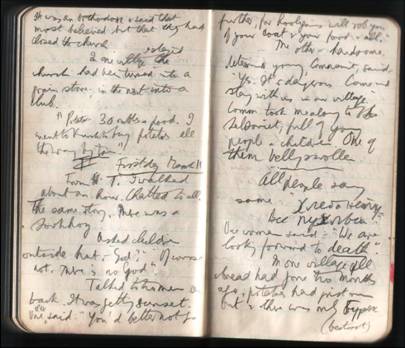 It was an Orthodox & said that
most believed but that they had
closed the church.
In one village the
church had been turned into a
grain store, in the next into a
club.
"Potato 30 roubles a pood. I
went to Kursk to buy potatoes all
the way by train."
First day March 11
From H. T. I walked
about an hour. Chatted to all.
The same story. There was a
Sovkhoz
Asked children
outside hut, "God?" "Of course
not. There is no god."
Talked to two men
back. It was getting sunset.
One said: "You'd better not go
further, for hooligans will rob you
of your coat & your food & all."
The other, a handsome,
determined young Communist, said:
"Yes. It's dangerous. Come and
stay with us in our village."
Comm. took me along to the
Selsoviet, full of young
people & children. One of
them belly swollen.
All people say
same. "Хлеба нету
Все пухлые."
One woman said: "We are
looking forward to death."
In one village all
bread had gone two months
ago, potatoes had just run
out & there was only буряк
(beetroot)